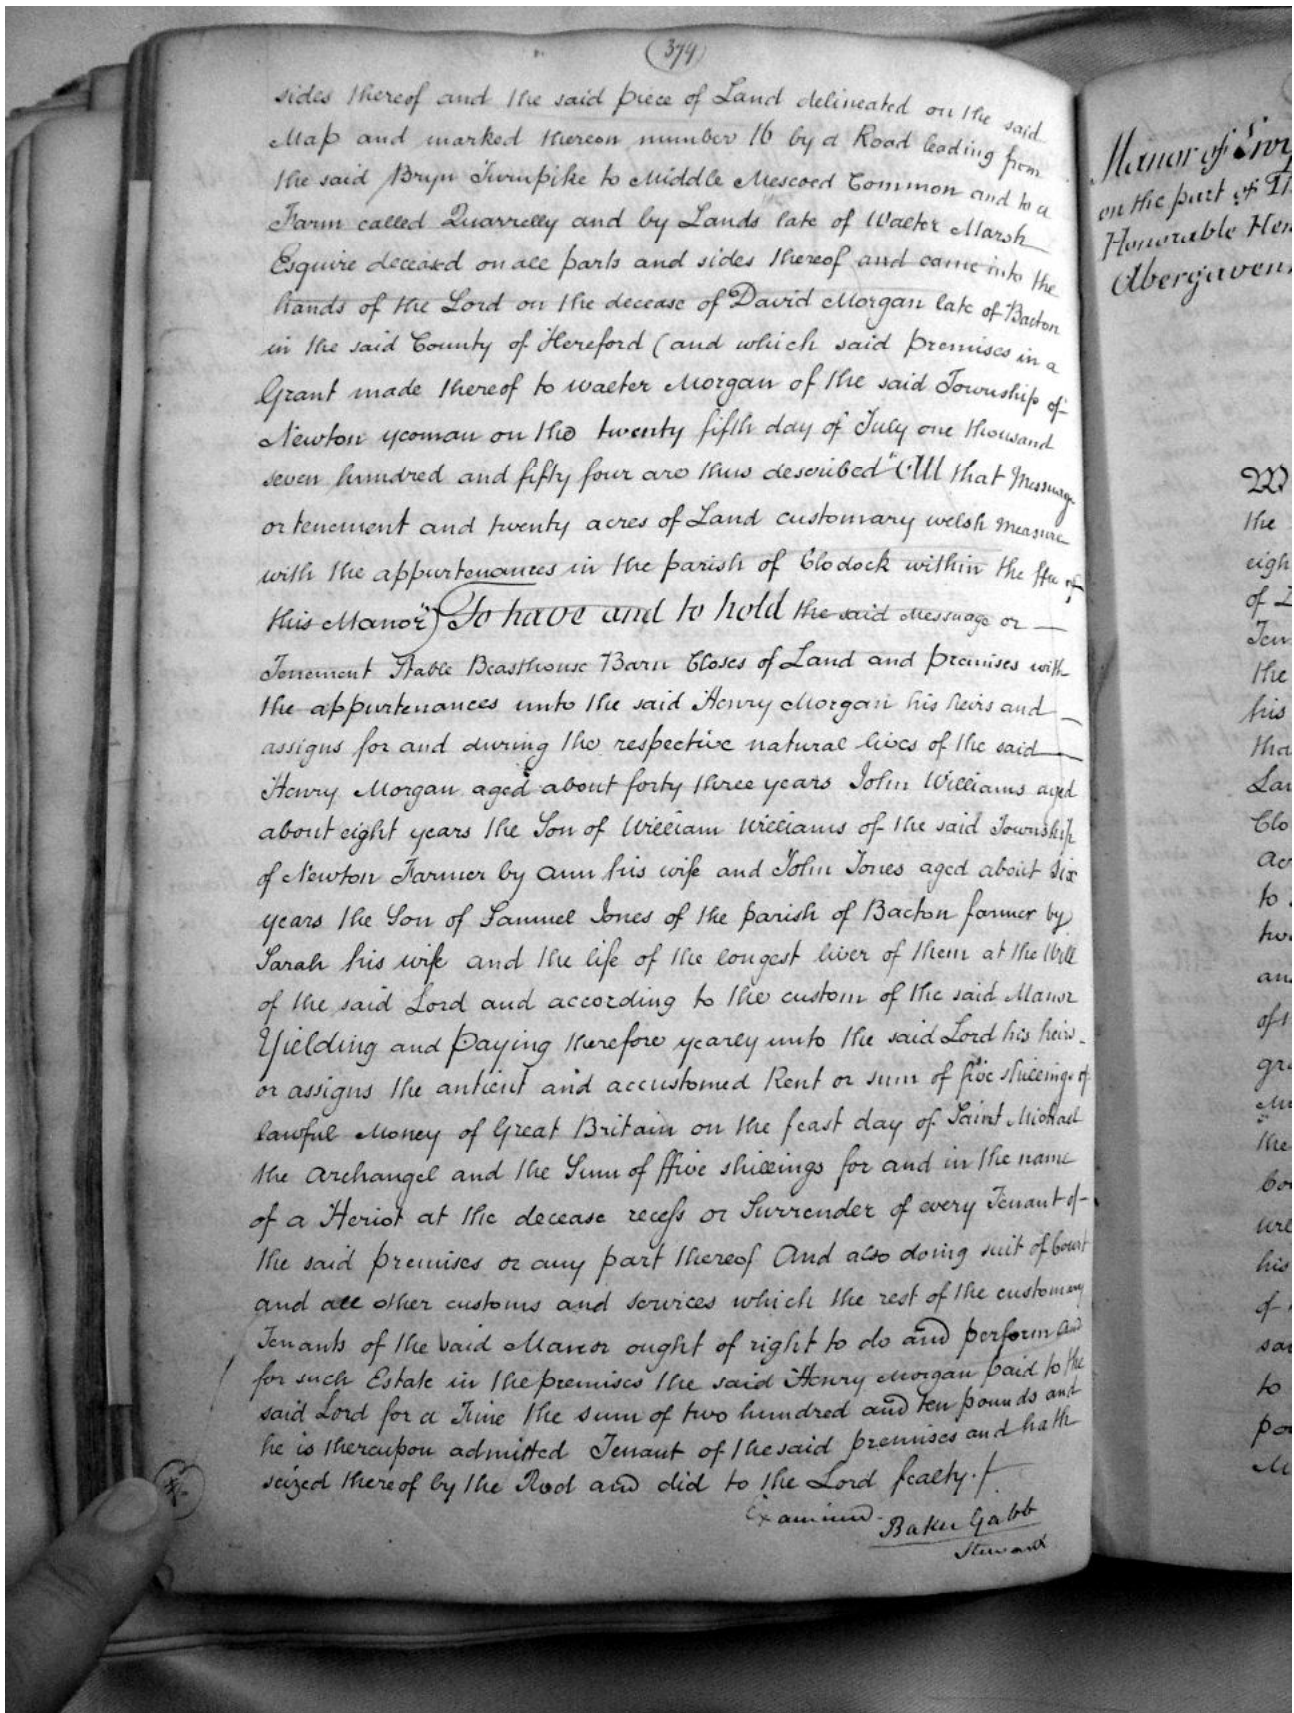 374
sides thereof and the said piece of Land delineated on the said
Map and marked thereon number 16 by a Road leading from
the said Bryn Turnpike to Middle Mescoed Common and to a
Farm called Quarrelly and by Lands late of Walter Marsh
Esquire deceased on all parts and sides thereof and came into the
hands of the Lord on the decease of David Morgan late of Bacton
in the said County of Hereford (and which said premises in a
Grant made thereof to Walter Morgan of the said Township of
Newton yeoman on the twenty fifth day of July one thousand
seven hundred and fifty four are thus described "All that Messuage
or tenement and twenty acres of Land customary welsh measure
with the appurtenances in the parish of Clodock within the ffee of
this Manor") To have and to hold the said Messuage or
Tenement Stable Beasthouse Barn Closes of Land and premises with
the appurtenances unto the said Henry Morgan his heirs and
assigns for and during the respective natural lives of the said
Henry Morgan aged about forty three years John Williams aged
about eight years the Son of William Williams of the said Township
of Newton Farmer by Ann his wife and John Jones aged about six
years the Son of Samuel Jones of the parish of Bacton farmer by
Sarah his wife and the life of the longest liver of them at the Will
of the said Lord and according to the custom of the said Manor
Yielding and Paying therefore yearly unto the said Lord his heirs
or assigns the antient and accustomed Rent or sum of five shillings of
lawful Money of Great Britain on the feast day of Saint Michael
the Archangel and the Sum of ffive shillings for and in the name
of a Heriot at the decease recess or Surrender of every Tenant of
the said premises or any part thereof And also doing suit of Court
and all other customs and services which the rest of the customary
Tenants of the said Manor ought of right to do and perform and
for such Estate in the premises the said Henry Morgan paid to the
said Lord for a Fine the sum of two hundred and ten pounds and
he is thereupon admitted Tenant of the said premises and hath
seized thereof by the Rod and did to the Lord fealty.
Examined
Baker Gabb
Steward
Manor of
on the part of
Honorable
W
the
of
the
his
to
and
the
his
of
to